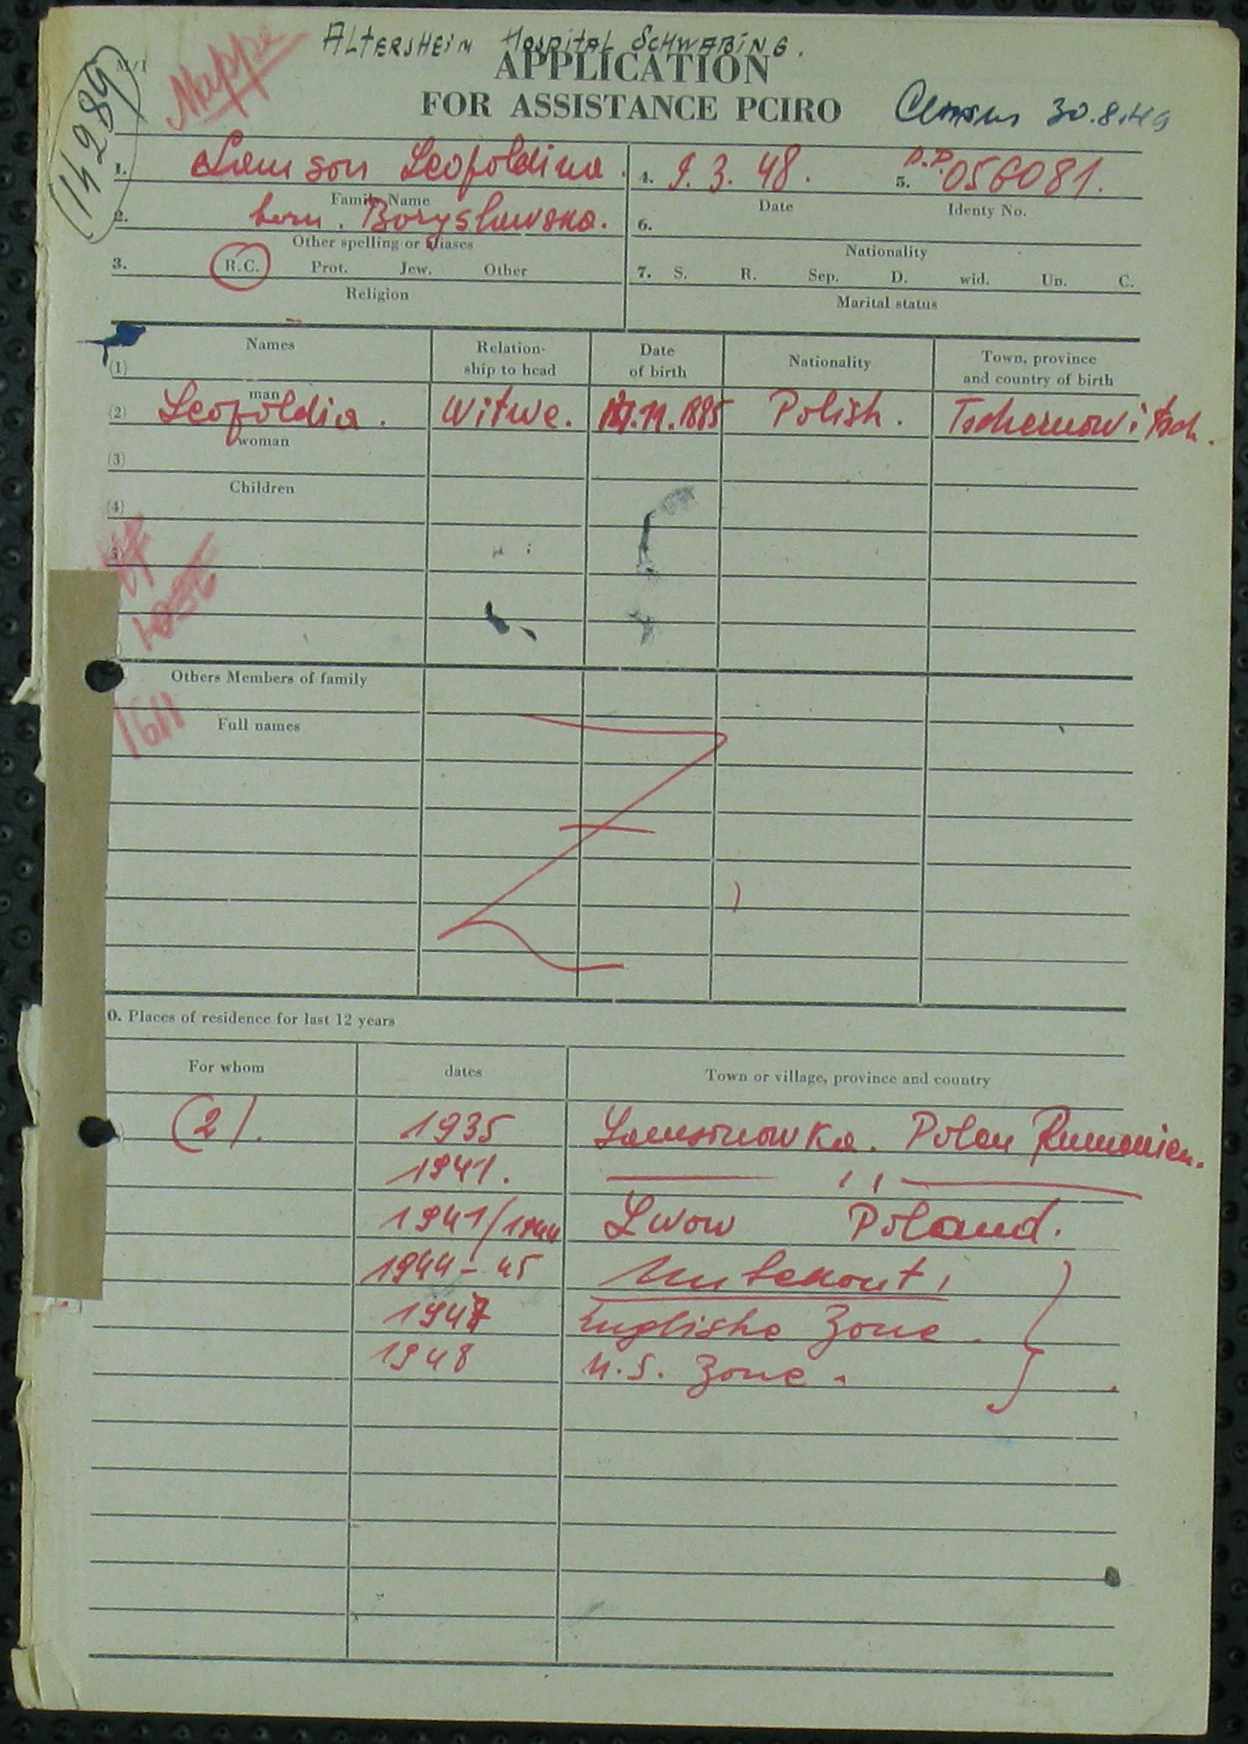 ALTERSHEIM HOSPITAL SCHWABING.
APPLICATION
FOR ASSISTANCE PCIRO
Census 30.8.49
14289
Mappe
1. Samson Leopoldina.
Family Name
2. born. Boryslawska.
Other spelling or aliases
3. R.C. Prot. Jew. Other
Religion
4. 9.3.48.
Date
5. D.P. 056081.
Identy No.
6.
Nationality
7. S. R. Sep. D. wid. Un. C.
Marital status
Names Relation-ship to head Date of birth Nationality Town, province and country of birth
(1)
man
(2) Leopoldia. Witwe. .11.1885 Polish. Tschernowitsch.
woman
(3)
Children
(4)
5)
1611
Others Members of family
Full names
0. Places of residence for last 12 years
For whom dates Town or village, province and country
(2). 1935 Polen Rumänien.
1941. ——— ,, ———
1941/1944 Lwow Poland.
1944-45 Unbekannt,
1947 Englishe Zone.
1948 U.S. Zone.